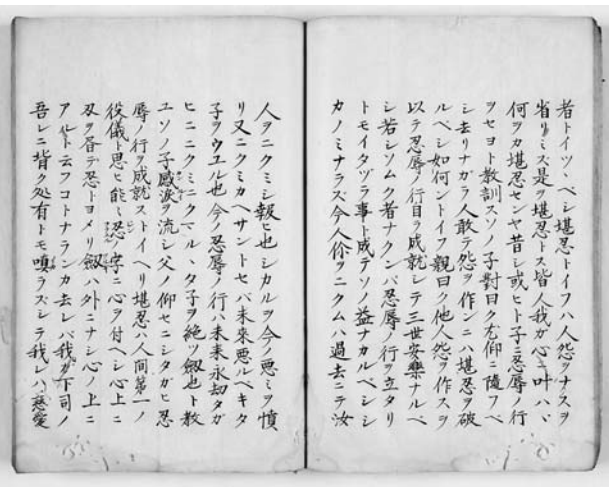 者トイツヽベシ堪忍トイフハ人怨ヲナスヲ
省リミス是ヲ堪忍トス皆人我ガ心ニ叶ハヽ
何ヲカ堪忍センヤ昔シ或ヒト子ニ忍辱ノ行
ヲセヨト教訓スソノ子對曰ク尤仰ニ隨フベ
シ去リナガラ人敢テ怨ヲ作ンニハ堪忍ヲ破
ルベシ如何ントイフ親曰ク他人怨ヲ作スヲ
以テ忍辱ノ行目ヲ成就シテ三世安樂ナルベ
シ若シソムク者ナクンバ忍辱ノ行ヲ立タリ
トモイタヅラ事ト成テソノ益ナカルベシシ
カノミナラズ今人你ヲニクムハ過去ニテ汝
人ヲニクミシ報ヒ也シカルヲ今ノ悪ミヲ憤
リ又ニクミカヘサントセバ未来悪ルベキタ
子ヲウユル也今ノ忍辱ノ行ハ未来永劫タガ
ヒニニクミニクマルヽタ子ヲ絶ツ劔也ト教
ユソノ子感涙ヲ流シ父ノ仰セニシタガヒ忍
辱ノ行ヲ成就ストイヘリ堪忍ハ人間第一ノ
役儀ト思ヒ能ミ忍ノ字ニ心ヲ付ヘシ心上ニ
刄ヲ呑テ忍トヨメリ劔ハ外ニナシ心ノ上ニ
アルト云フコトナランカ去レバ我ガ下司ノ
吾レニ背ク処有トモ嗔ラズシテ我レハ慈愛